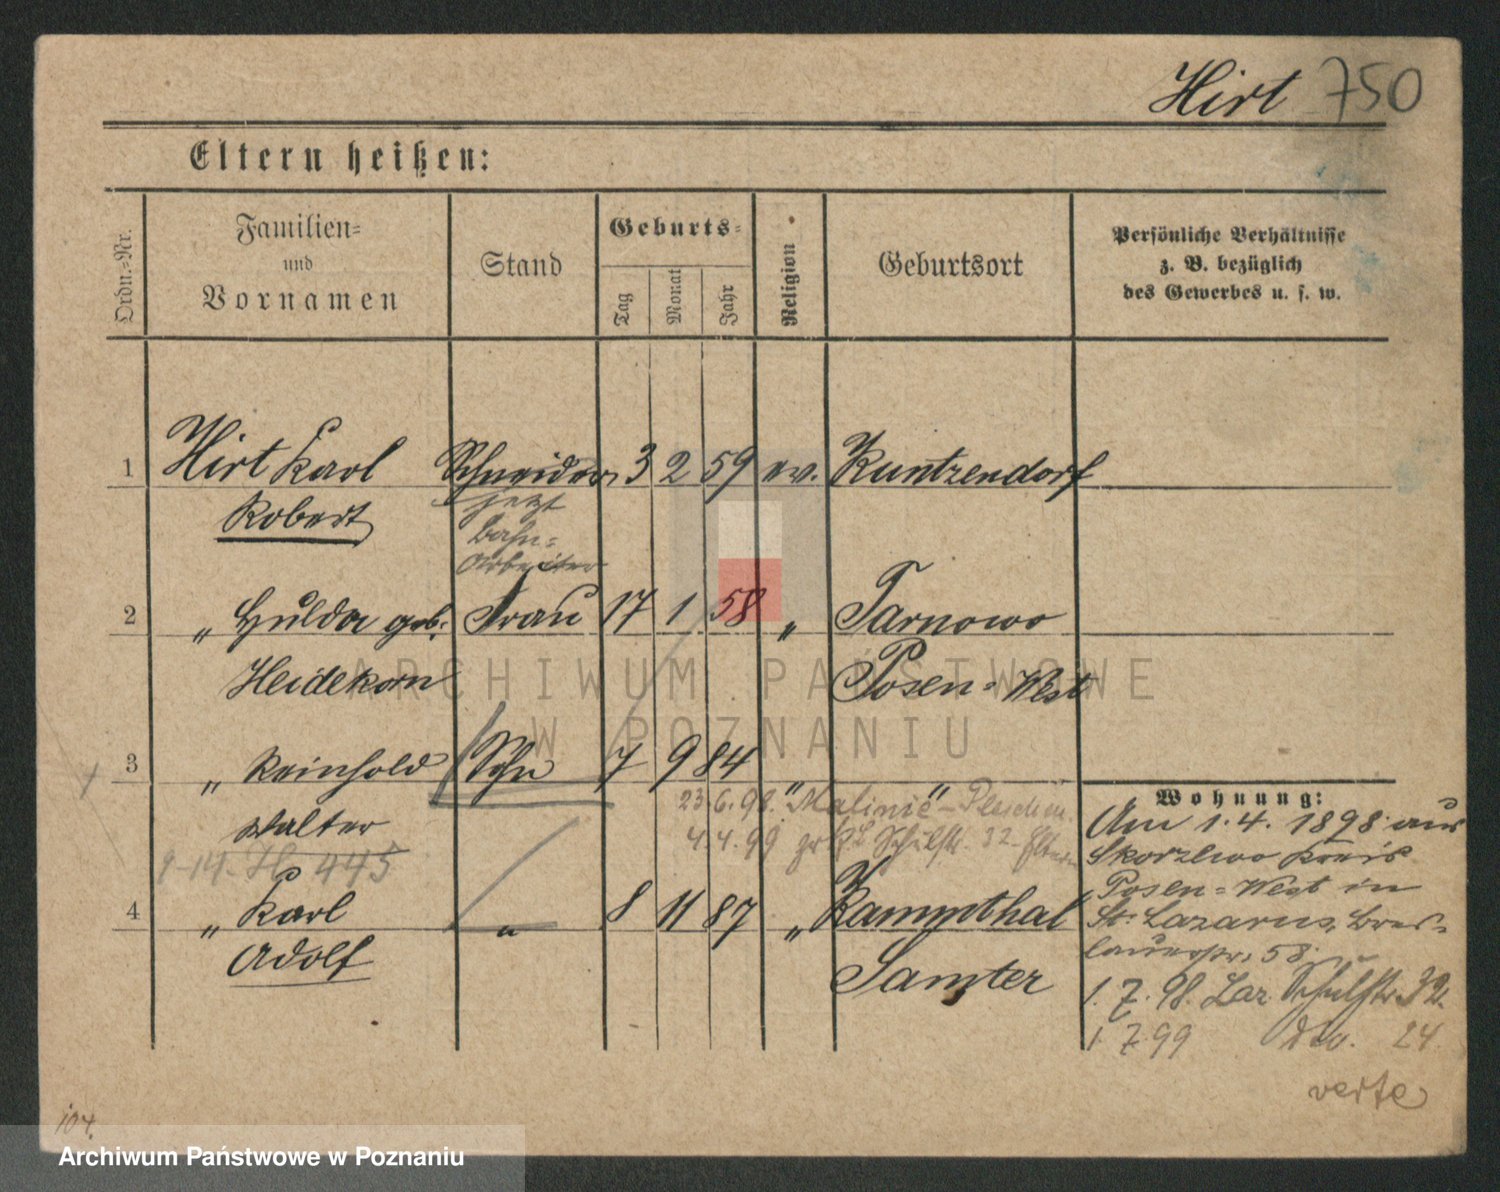 Hirt 750
Eltern heißen:
Ordn.-Nr.
Familien-
und
Vornamen
Stand
Geburts-
Tag
Monat
Jahr
Religion
Geburtsort
Persönliche Verhältnisse
z. B. bezüglich
des Gewerbes u. s. w.
1 Hirt Karl Schneider 3 2 59 ev. Kuntzendorf
Robert
jetzt
Bahn-
Arbeiter
2 " Hulda geb. Frau 17 1 58 " Tarnowo
Heidekorn Posen-West
3 " Reinhold Sohn 7 9 84 " "
Walter
23.6.98. Malinie - Pleschen.
4.4.99 Schulstr. 32 - Eltern
9-14. H 445
4 " Karl " 8 11 87 " Kammthal
Adolf Samter
Wohnung:
Am 1.4. 1898 aus
Skorzewo Kreis
Posen-West in
St. Lazarus, Bres-
lauerstr. 58.
1. 7. 98. Laz. Schulstr. 32.
1. 7 99 dto. 24.
verte
104.
ARCHIWUM PAŃSTWOWE
W POZNANIU
Archiwum Państwowe w Poznaniu